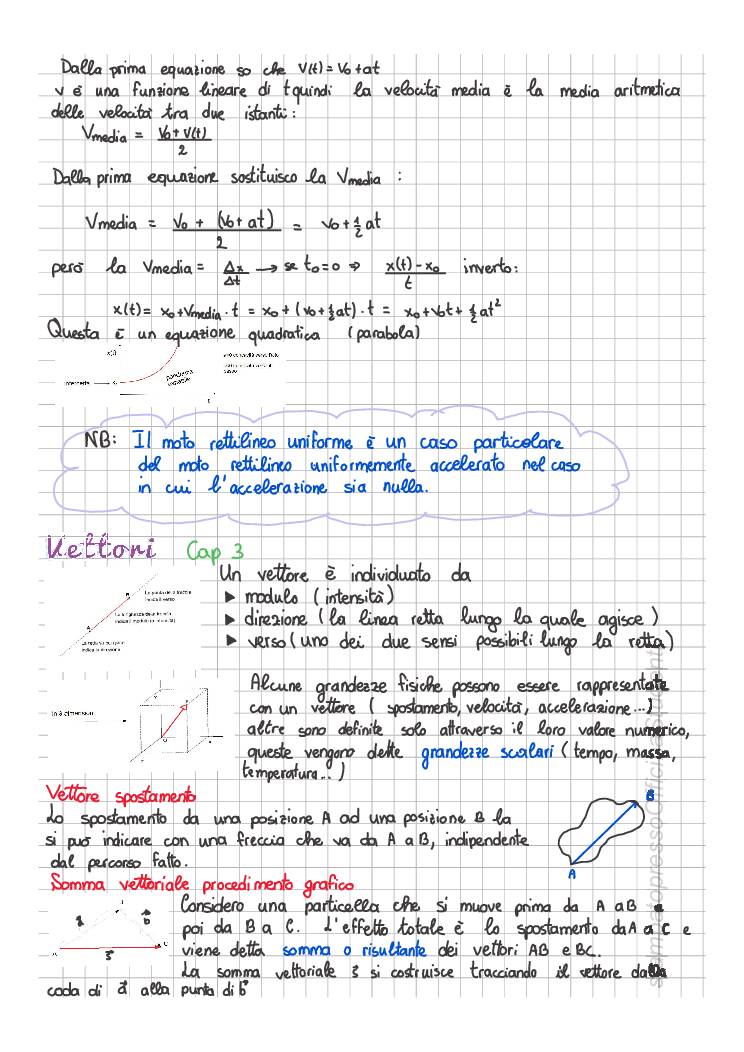 Dalla prima equazione so che v(t) = v₀ + at
v è una funzione lineare di t quindi la velocità media è la media aritmetica
delle velocità tra due istanti:
Vmedia = (v₀ + v(t)) / 2
Dalla prima equazione sostituisco la Vmedia :
Vmedia = (v₀ + (v₀ + at)) / 2 = v₀ + ½ at
però la Vmedia = Δx/Δt → se t₀=0 ⇒ (x(t) - x₀)/t inverto:
x(t) = x₀ + Vmedia · t = x₀ + (v₀ + ½ at) · t = x₀ + v₀t + ½ at²
Questa è un equazione quadratica (parabola)
x(t)
intercetta
pendenza
variabile
t
NB: Il moto rettilineo uniforme è un caso particolare
del moto rettilineo uniformemente accelerato nel caso
in cui l'accelerazione sia nulla.
Vettori Cap 3
Un vettore è individuato da
▶ modulo (intensità)
▶ direzione (la linea retta lungo la quale agisce)
▶ verso (uno dei due sensi possibili lungo la retta)
B
La punta della freccia
indica il verso
La lunghezza della freccia
indica il modulo (o intensità)
A
La retta su cui giace
indica la direzione
Alcune grandezze fisiche possono essere rappresentate
con un vettore (spostamento, velocità, accelerazione...)
altre sono definite solo attraverso il loro valore numerico,
queste vengono dette grandezze scalari (tempo, massa,
temperatura...)
In 3 dimensioni
Vettore spostamento
Lo spostamento da una posizione A ad una posizione B la
si può indicare con una freccia che va da A a B, indipendente
dal percorso fatto.
B
A
Somma vettoriale procedimento grafico
Considero una particella che si muove prima da A a B e
poi da B a C. L'effetto totale è lo spostamento da A a C e
viene detta somma o risultante dei vettori AB e BC.
La somma vettoriale s⃗ si costruisce tracciando il vettore dalla
coda di a⃗ alla punta di b⃗
a⃗
b⃗
A
C
s⃗